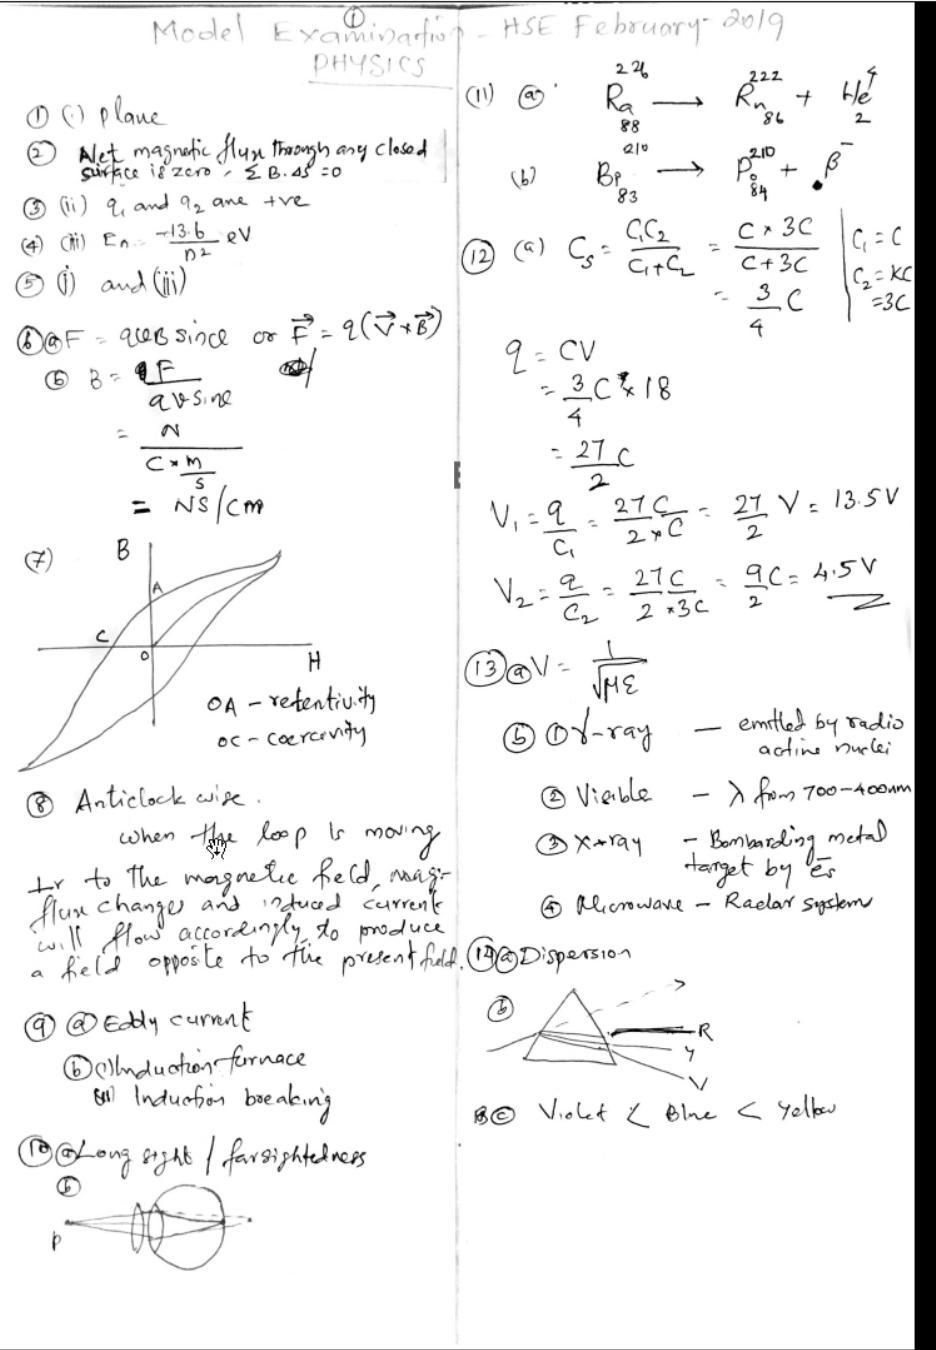 ①
Model Examination - HSE February - 2019
PHYSICS
① (i) plane
② Net magnetic flux through any closed
surface is zero, Σ B.ΔS = 0
③ (ii) q₁ and q₂ are +ve
(4) (iii) Eₙ = -13.6/n² eV
⑤ (i) and (iii)
⑥ ⓐ F = qvB sinθ or F⃗ = q(V⃗ × B⃗)
ⓑ B = F/qv sinθ
= N/(C × m/s)
= NS/Cm
(7)
B
A
C
O
H
OA - retentivity
OC - coercivity
⑧ Anticlock wise.
when the loop is moving
⊥r to the magnetic field, mag-
flux changes and induced current
will flow accordingly, to produce
a field opposite to the present field.
⑨ ⓐ Eddy current
ⓑ (i) Induction furnace
(ii) Induction breaking
⑩ ⓐ Long sight / farsightedness
ⓑ
P
(11) ⓐ ²²⁶Ra₈₈ → ²²²Rn₈₆ + ⁴He₂
(b) ²¹⁰Bi₈₃ → ²¹⁰Po₈₄ + β⁻
⑫ (a) Cₛ = C₁C₂/(C₁+C₂) = C × 3C/(C+3C)
C₁ = C
C₂ = KC
= 3C
= 3/4 C
q = CV
= 3/4 C × 18
= 27/2 C
V₁ = q/C₁ = 27C/(2×C) = 27/2 V = 13.5V
V₂ = q/C₂ = 27C/(2×3C) = 9C/2 = 4.5V
⑬ ⓐ V = 1/√με
ⓑ ① γ-ray — emitted by radio
active nuclei
② Visible - λ from 700-400nm
③ X-ray - Bombarding metal
target by ēs
④ Microwave - Radar system
⑭ ⓐ Dispersion
ⓑ
R
Y
V
ⓒ Violet < Blue < Yellow